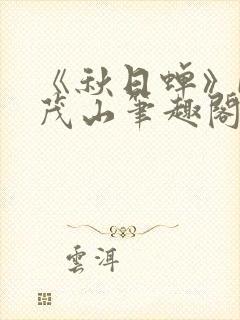 《秋日蝉》
茂山筆趣閣
雲洱